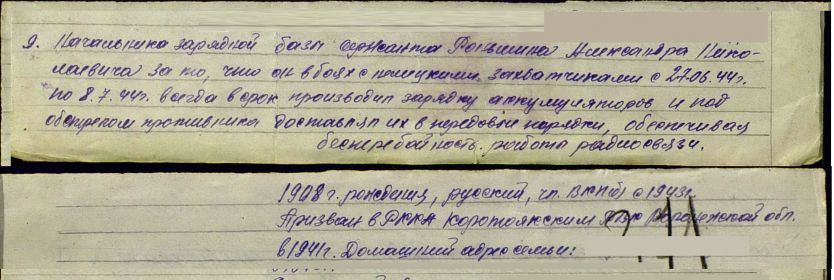 9. Начальника зарядной базы сержанта Роньшина Александра Нико-
лаевича за то, что он в боях с немецкими захватчиками с 27.06.44г.
по 8.7.44г. всегда в срок производил зарядку аккумуляторов и под
обстрелом противника доставлял их в передовые порядки, обеспечивая
бесперебойность работы радиосвязи.
1908 г. рождения, русский, чл. ВКП(б) с 1943г.
Призван в РККА Коротоякским РВК Воронежской обл.
в 1941г. Домашний адрес семьи: